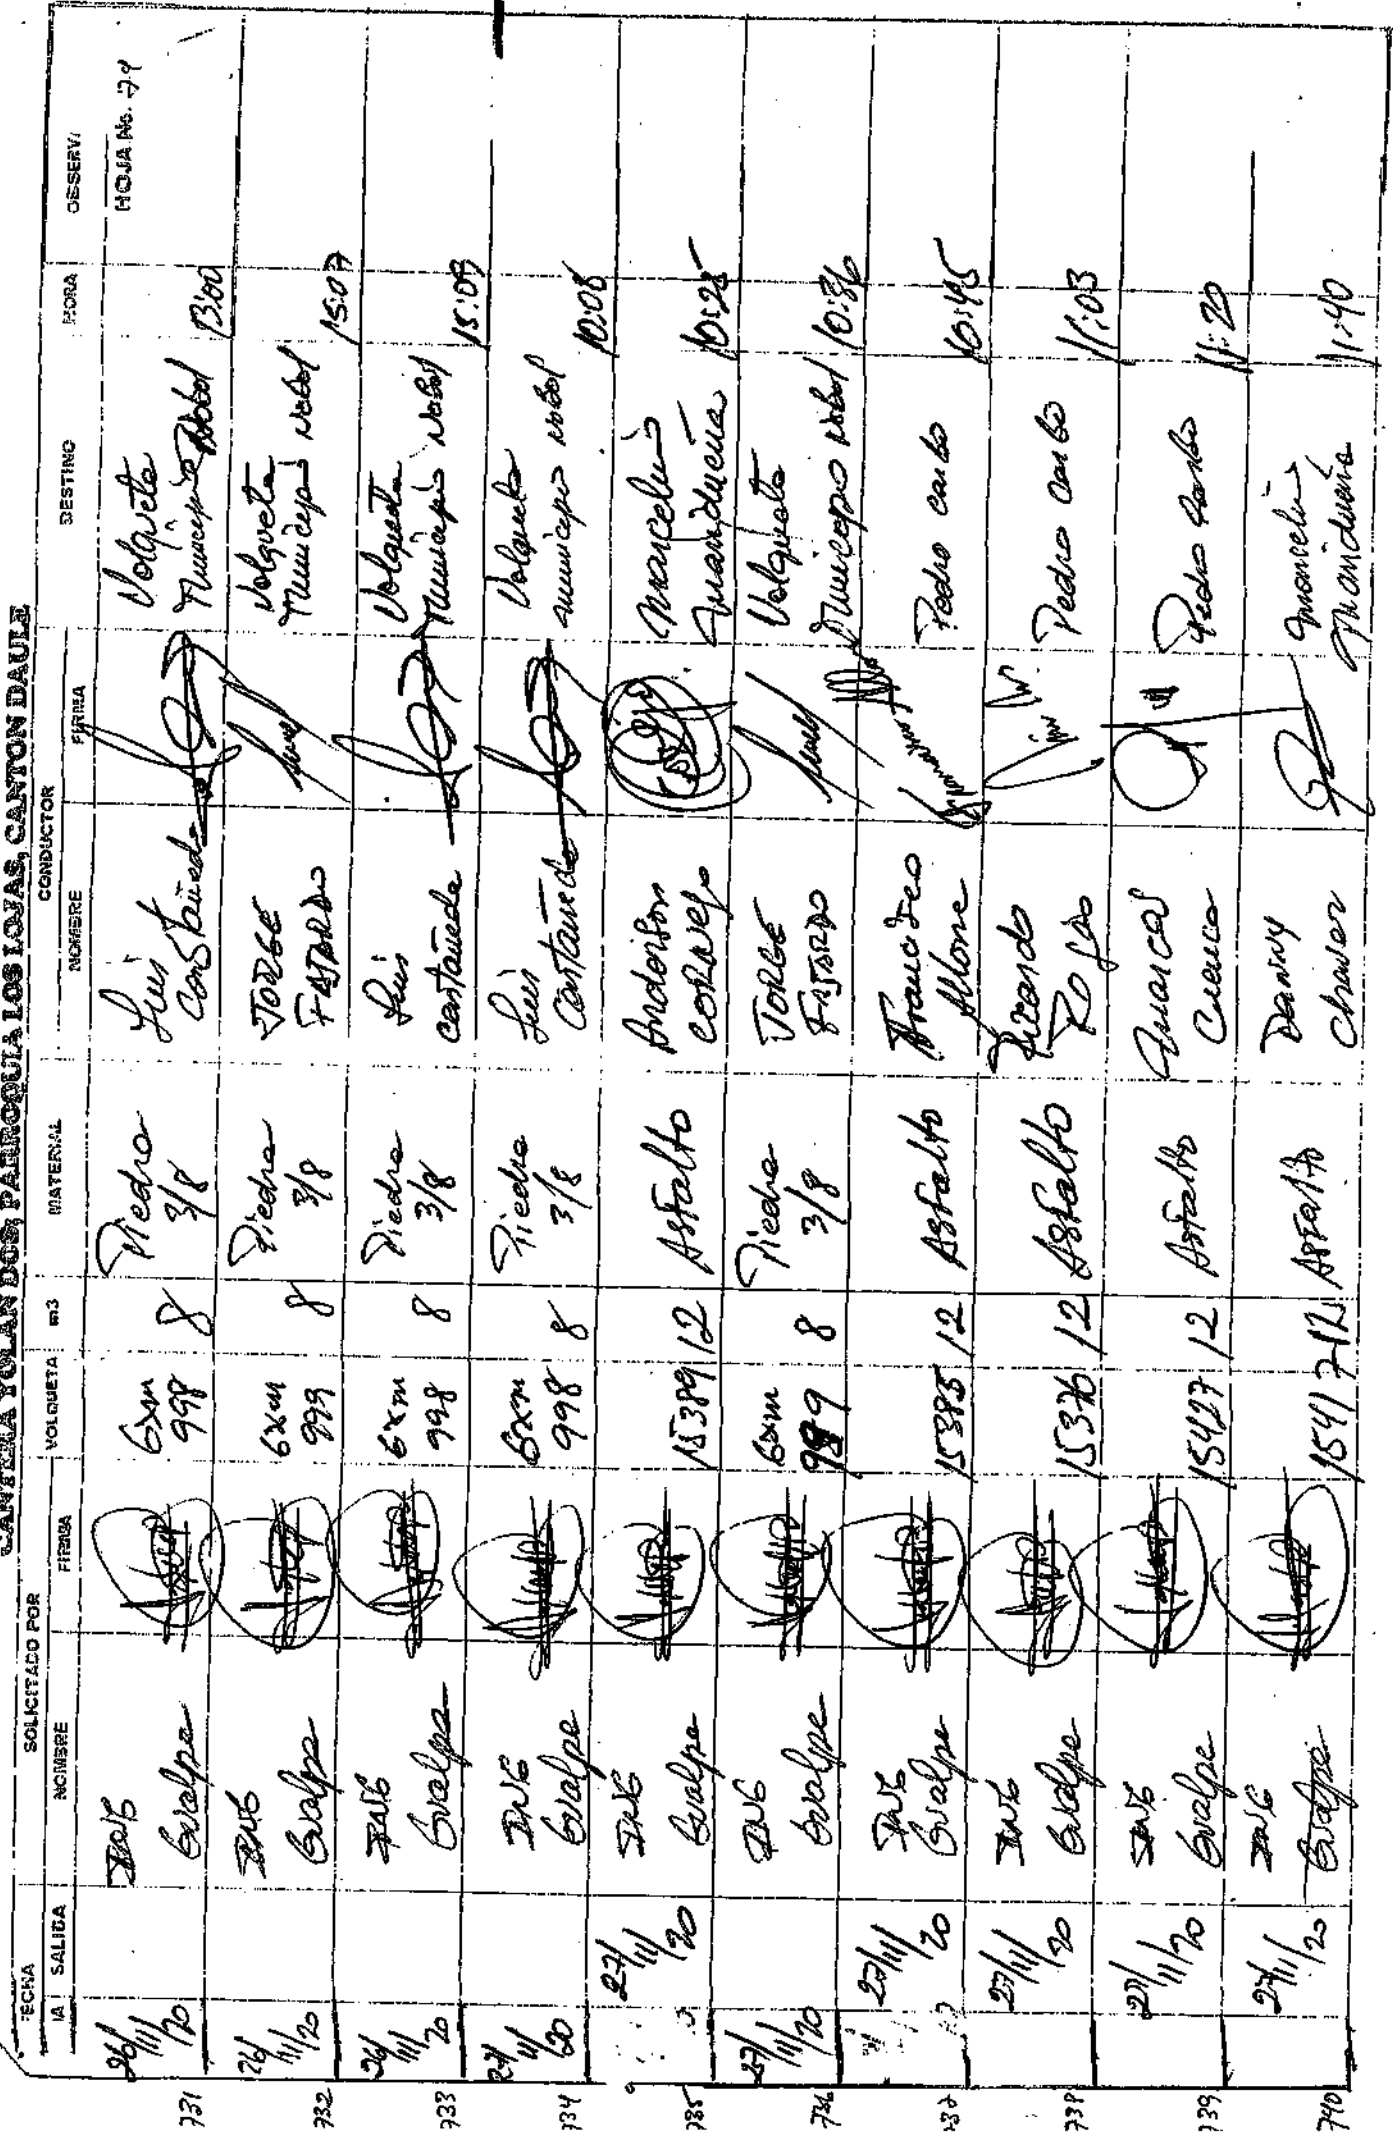 CANTERA YOLAN DOS, PARROQUIA LOS LOJAS, CANTON DAULE
FECHA SOLICITADO POR CONDUCTOR
IA SALIDA NOMBRE FIRMA VOLQUETA m3 MATERIAL NOMBRE FIRMA DESTINO HORA OBSERV
HOJA No. 74
731 26/11/20 ING Gualpe 6xm 998 8 Piedra 3/8 Luis Constañeda Volqueta Municipio Nobol 13:00
732 26/11/20 ING Gualpe 6xm 999 8 Piedra 3/8 JORGE FAJARDO Volqueta Municipio Nobol 15:07
733 26/11/20 ING Gualpe 6xm 998 8 Piedra 3/8 Luis castañeda Volqueta Municipio Nobol 15:09
734 27/11/20 ING Gualpe 6xm 998 8 Piedra 3/8 Luis Castañeda Volqueta municipio nobol 10:08
735 27/11/20 ING Gualpe 15389 12 Asfalto Anderson CORNEJO Marcelino Mariduena 10:25
736 27/11/20 ING Gualpe 6xm 999 8 Piedra 3/8 JORGE FAJARDO Volqueta Municipio Nobol 10:36
737 27/11/20 ING Gualpe 15385 12 Asfalto Francisco Pedro carbo 10:45
738 27/11/20 ING Gualpe 15376 12 Asfalto Ricardo Pedro carbo 11:03
739 27/11/20 ING Gualpe 15427 12 Asfalto Marcos Cuenca Pedro carbo 11:20
740 27/11/20 ING Gualpe 15417 12 Asfalto Danny chavez Marcelino Mariduena 11:40